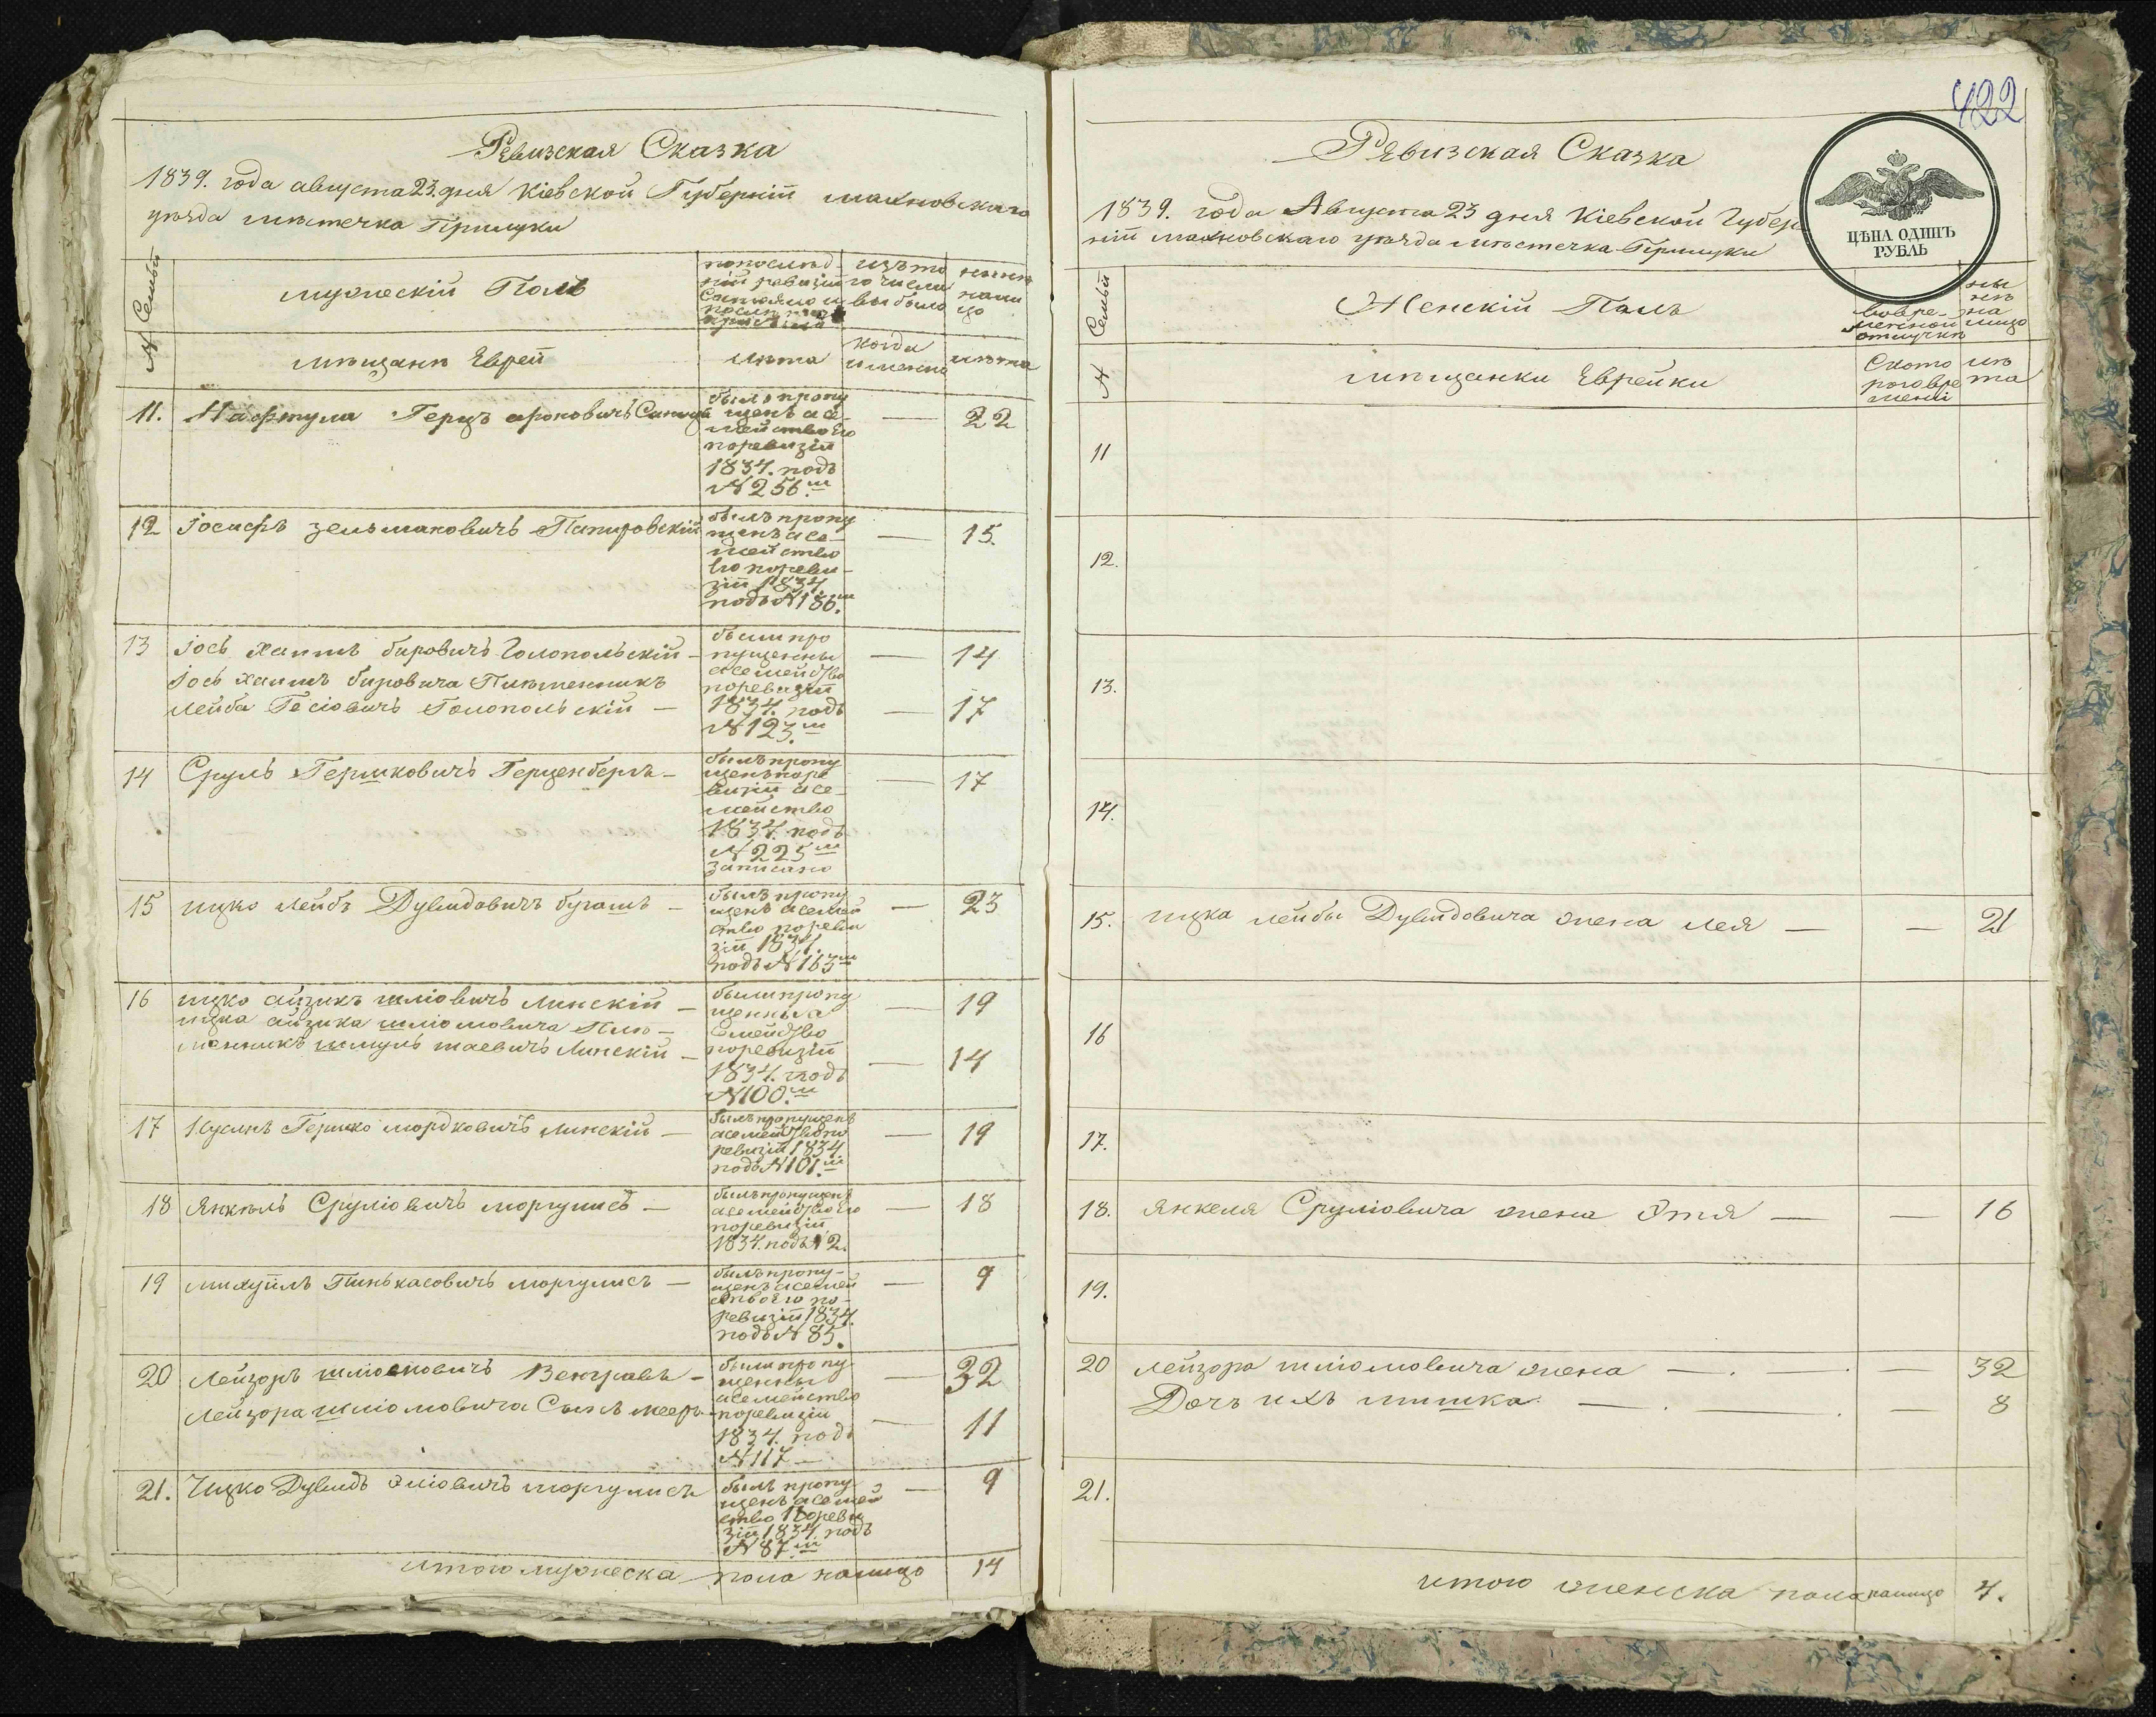 Ревизская Сказка
1839. года августа 23. дня Кіевской Губерніи махновскаго
уѣзда мѣстечка Прилуки
№ Семьи
мужескій Полъ
попослѣд-
ній ревизіи
Состояло и
послѣ того
изъ то
го числа
выбыло
нынѣ
нали
цо
мѣщанѣ Еврей
лѣта
когда
именно
лѣта
11. Нафтула Герцъ ароновичъ
былъ пропу
щенъ а се-
мейство Его
поревизіи
1834. подъ
№ 256.м
—
22
12 Іосифъ зельмановичъ Папировскій
былъ пропу
щенъ а се-
мейство
Его пореви-
зіи 1834
подъ № 186.м
—
15.
13 Іось хаимъ беровичъ Голопольскій —
Іось хаимъ беровича Племенникъ
Лейба Гесіовичъ Голопольскій —
были про
пущенны
а семейство
поревизіи
1834. подъ
№ 123.м
— 14
— 17
14 Сруль Гершковичъ Герценбергъ —
былъ пропу
щенъ поре
визіи а се-
мейство
1834. подъ
№ 225м
записано
—
17
15 ицко Лейбъ Дувидовичъ бугашъ —
былъ пропу
щенъ а семей
ство пореви
зіи 1834.
подъ № 163м
—
23
16 ицко айзикъ шліовичъ Линскій —
ицка айзика шліомовича Пле-
менникъ шмуль Линскій —
были пропу
щенны а
Семейство
поревизіи
1834. подъ
№ 100.м
— 19
— 14
17 Нусинъ Гершко мордковичъ Линскій —
былъ пропущенъ
а семейство по
ревизіи 1834
подъ № 101.м
—
19
18 Янкель Сруліовичъ моргулисъ —
былъ пропущенъ
а семейство Его
поревизіи
1834. подъ № 2.
—
18
19 михуилъ Пинькасовичъ моргулисъ —
былъ пропу-
щенъ а семей
ство Его по-
ревизіи 1834.
подъ № 85.
—
9
20 Лейзоръ шліомовичъ Венгравъ —
Лейзора шліомовича Сынъ мееръ
были пропу-
щенны
а семейство
поревизіи
1834. подъ
№ 117 —
— 32
— 11
21. Ицко Дувидъ Эліовичъ моргулисъ
былъ пропу-
щенъ а семей
ство Пореви
зіи 1834. подъ
№ 87.м
—
9
итого мужеска пола налицо 14
422
Ревизская Сказка
1839. года Августа 23 дня Кіевской Губер
ніи махновскаго уѣзда мѣстечка Прилуки
ЦѢНА ОДИНЪ
РУБЛЬ
№ Семьи
Женскій Полъ
вовре-
менной
отлучкѣ
ны
нѣ
на
лицо
мѣщанки Еврейки
Съкото
раго вре
мени
лѣ
та
11
12.
13.
14.
15. ицка лейбы Дувидовича жена лея — — 21
16
17.
18. Янкеля Сруліовича жена Этя — — 16
19.
20 лейзора шліомовича жена — . — . 32
Дочъ ихъ мишка — . — . — 8
21.
итого женска пола налицо 4.